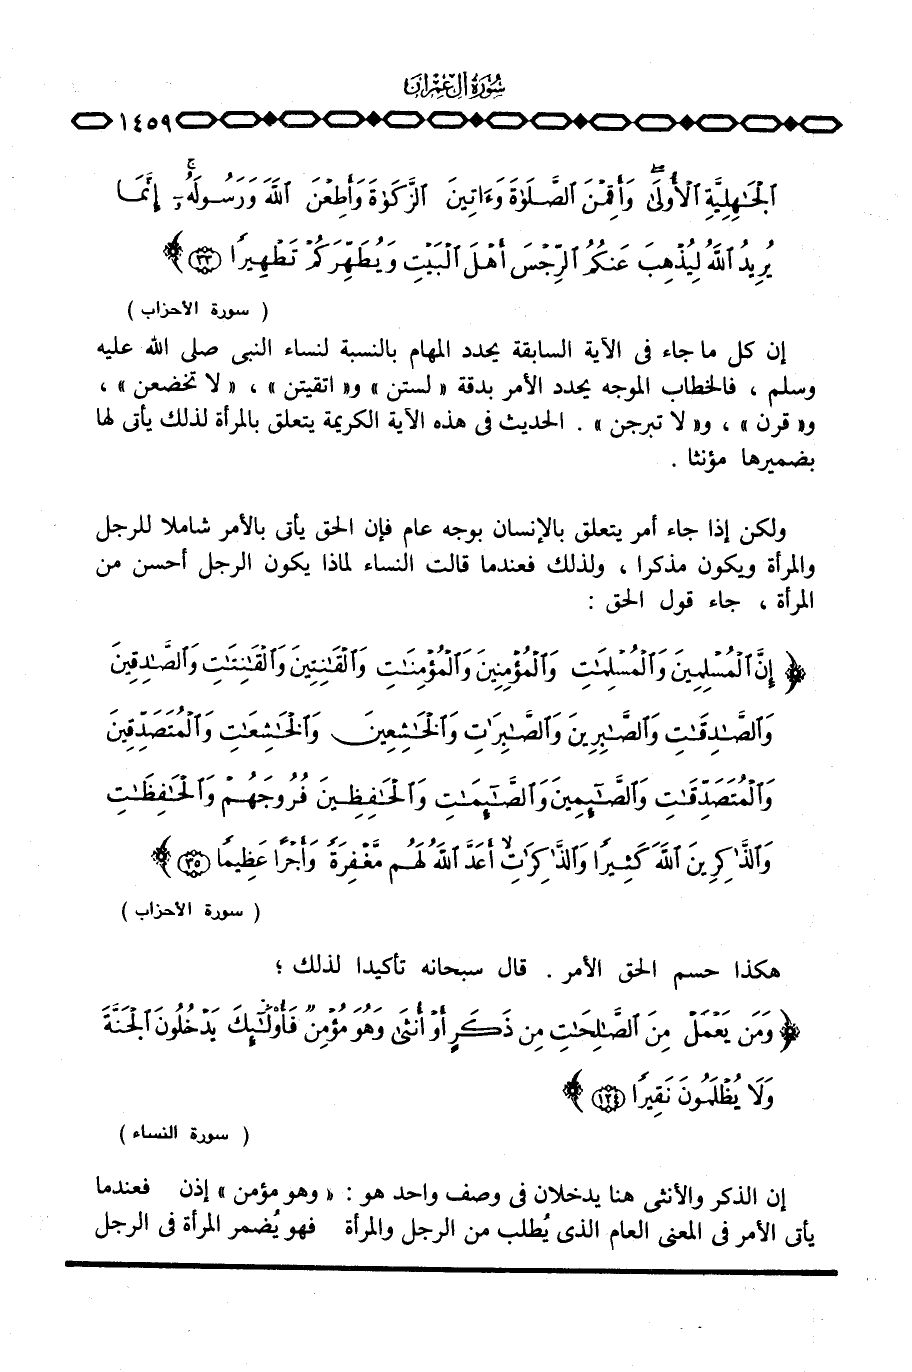 سُورَةُ آلِ عِمْرَانَ
١٤٥٩
ٱلْجَٰهِلِيَّةِ ٱلْأُولَىٰۖ وَأَقِمْنَ ٱلصَّلَوٰةَ وَءَاتِينَ ٱلزَّكَوٰةَ وَأَطِعْنَ ٱللَّهَ وَرَسُولَهُۥٓۚ إِنَّمَا
يُرِيدُ ٱللَّهُ لِيُذْهِبَ عَنكُمُ ٱلرِّجْسَ أَهْلَ ٱلْبَيْتِ وَيُطَهِّرَكُمْ تَطْهِيرًا ٣٣ ﴾
( سورة الأحزاب )
إن كل ما جاء فى الآية السابقة يحدد المهام بالنسبة لنساء النبى صلى الله عليه
وسلم ، فالخطاب الموجه يحدد الأمر بدقة « لستن » و« اتقيتن » ، « لا تخضعن » ،
و« قرن » ، و« لا تبرجن » . الحديث فى هذه الآية الكريمة يتعلق بالمرأة لذلك يأتى لها
بضميرها مؤنثا .
ولكن إذا جاء أمر يتعلق بالإنسان بوجه عام فإن الحق يأتى بالأمر شاملا للرجل
والمرأة ويكون مذكرا ، ولذلك فعندما قالت النساء لماذا يكون الرجل أحسن من
المرأة ، جاء قول الحق :
﴿ إِنَّ ٱلْمُسْلِمِينَ وَٱلْمُسْلِمَٰتِ وَٱلْمُؤْمِنِينَ وَٱلْمُؤْمِنَٰتِ وَٱلْقَٰنِتِينَ وَٱلْقَٰنِتَٰتِ وَٱلصَّٰدِقِينَ
وَٱلصَّٰدِقَٰتِ وَٱلصَّٰبِرِينَ وَٱلصَّٰبِرَٰتِ وَٱلْخَٰشِعِينَ وَٱلْخَٰشِعَٰتِ وَٱلْمُتَصَدِّقِينَ
وَٱلْمُتَصَدِّقَٰتِ وَٱلصَّٰٓئِمِينَ وَٱلصَّٰٓئِمَٰتِ وَٱلْحَٰفِظِينَ فُرُوجَهُمْ وَٱلْحَٰفِظَٰتِ
وَٱلذَّٰكِرِينَ ٱللَّهَ كَثِيرًا وَٱلذَّٰكِرَٰتِۙ أَعَدَّ ٱللَّهُ لَهُم مَّغْفِرَةً وَأَجْرًا عَظِيمًا ٣٥ ﴾
( سورة الأحزاب )
هكذا حسم الحق الأمر . قال سبحانه تأكيدا لذلك ؛
﴿ وَمَن يَعْمَلْ مِنَ ٱلصَّٰلِحَٰتِ مِن ذَكَرٍ أَوْ أُنثَىٰ وَهُوَ مُؤْمِنٌ فَأُو۟لَٰٓئِكَ يَدْخُلُونَ ٱلْجَنَّةَ
وَلَا يُظْلَمُونَ نَقِيرًا ١٢٤ ﴾
( سورة النساء )
إن الذكر والأنثى هنا يدخلان فى وصف واحد هو : « وهو مؤمن » إذن فعندما
يأتى الأمر فى المعنى العام الذى يُطلب من الرجل والمرأة فهو يُضمر المرأة فى الرجل